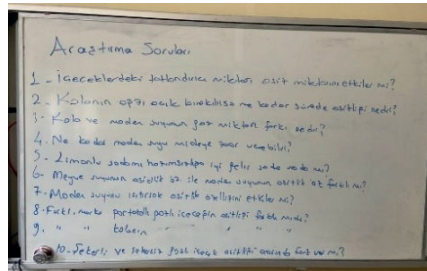 Araştırma Soruları
1- İçeceklerdeki tatlandırıcı miktarı asit miktarını etkiler mi?
2- Kolanın ağzı açık bırakılırsa ne kadar sürede asitliği nedir?
3- Kola ve maden suyunun gaz miktarı farkı nedir?
4. Ne kadar maden suyu mideye zarar verebilir?
5- Limonlu sodamı hazımsızlığa iyi gelir sade soda mı?
6- Meyve suyunun asitlik ile maden suyunun asitlik farklı mı?
7- Maden suyunu ısıtırsak asitlik özelliğini etkiler mi?
8. Farklı marka portakallı gazlı içeceğin asitliği farklı mıdır?
9. " " kolanın " " "
10. Şekerli ve şekersiz gazlı içecek asitliği arasında fark var mı?